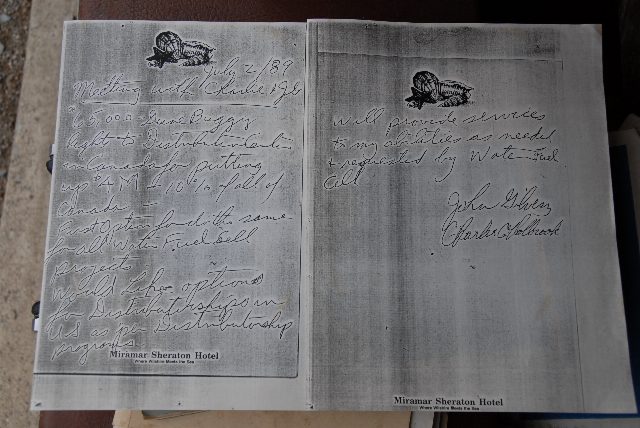 July 2/89
Meeting with Charlie & John
65,000 Dune Buggy
Right to Distribution
in Canada for putting
up 4 M + 10% of all of
Canada
First Option for do the same
for all Water Fuel Cell
projects
Would like options
for Distributorships in
U.S as per Distributorship
programs
Miramar Sheraton Hotel
Where Wilshire Meets the Sea
Will provide services
to my abilities as needed
& requested by Water Fuel
Cell
John
Charlie Holbrook
Miramar Sheraton Hotel
Where Wilshire Meets the Sea